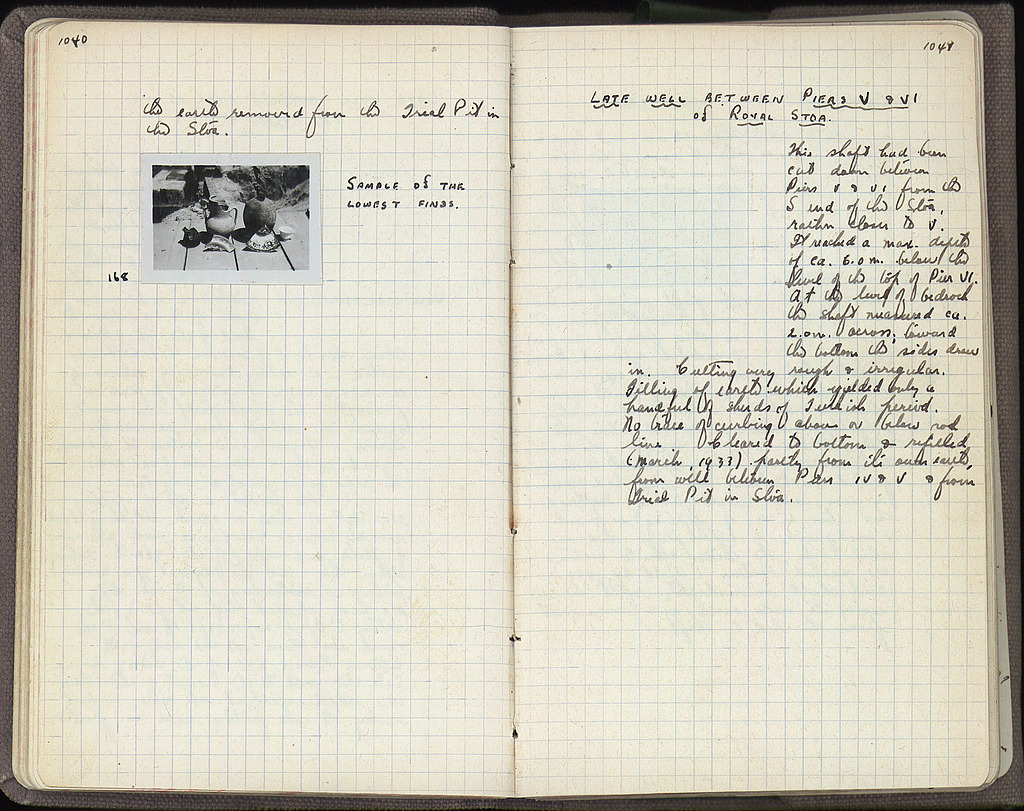 1040
the earth removed from the Trial Pit in
the Stoa.
SAMPLE of THE
LOWEST FINDS.
168
1041
LATE WELL BETWEEN PIERS V & VI
of ROYAL STOA.
This shaft had been
cut down between
Piers V & VI from the
S end of the Stoa,
rather closer to V.
It reached a max. depth
of ca. 6.0 m. below the
level of the top of Pier VI.
At the level of bedrock
the shaft measured ca.
2.0 m. across; toward
the bottom the sides drew
in. Cutting very rough & irregular.
Filling of earth which yielded only a
handful of sherds of Turkish period.
No trace of curbing above or below rock
line. Cleared to bottom & refilled
(March, 1933) partly from its own earth,
from well between Piers IV & V & from
Trial Pit in Stoa.